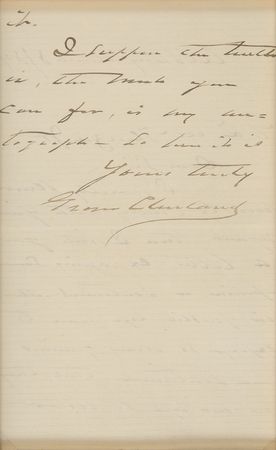 it.
I suppose the truth
is, the most you
care for, is my au=
tograph — So here it is
Yours truly
Grover Cleveland